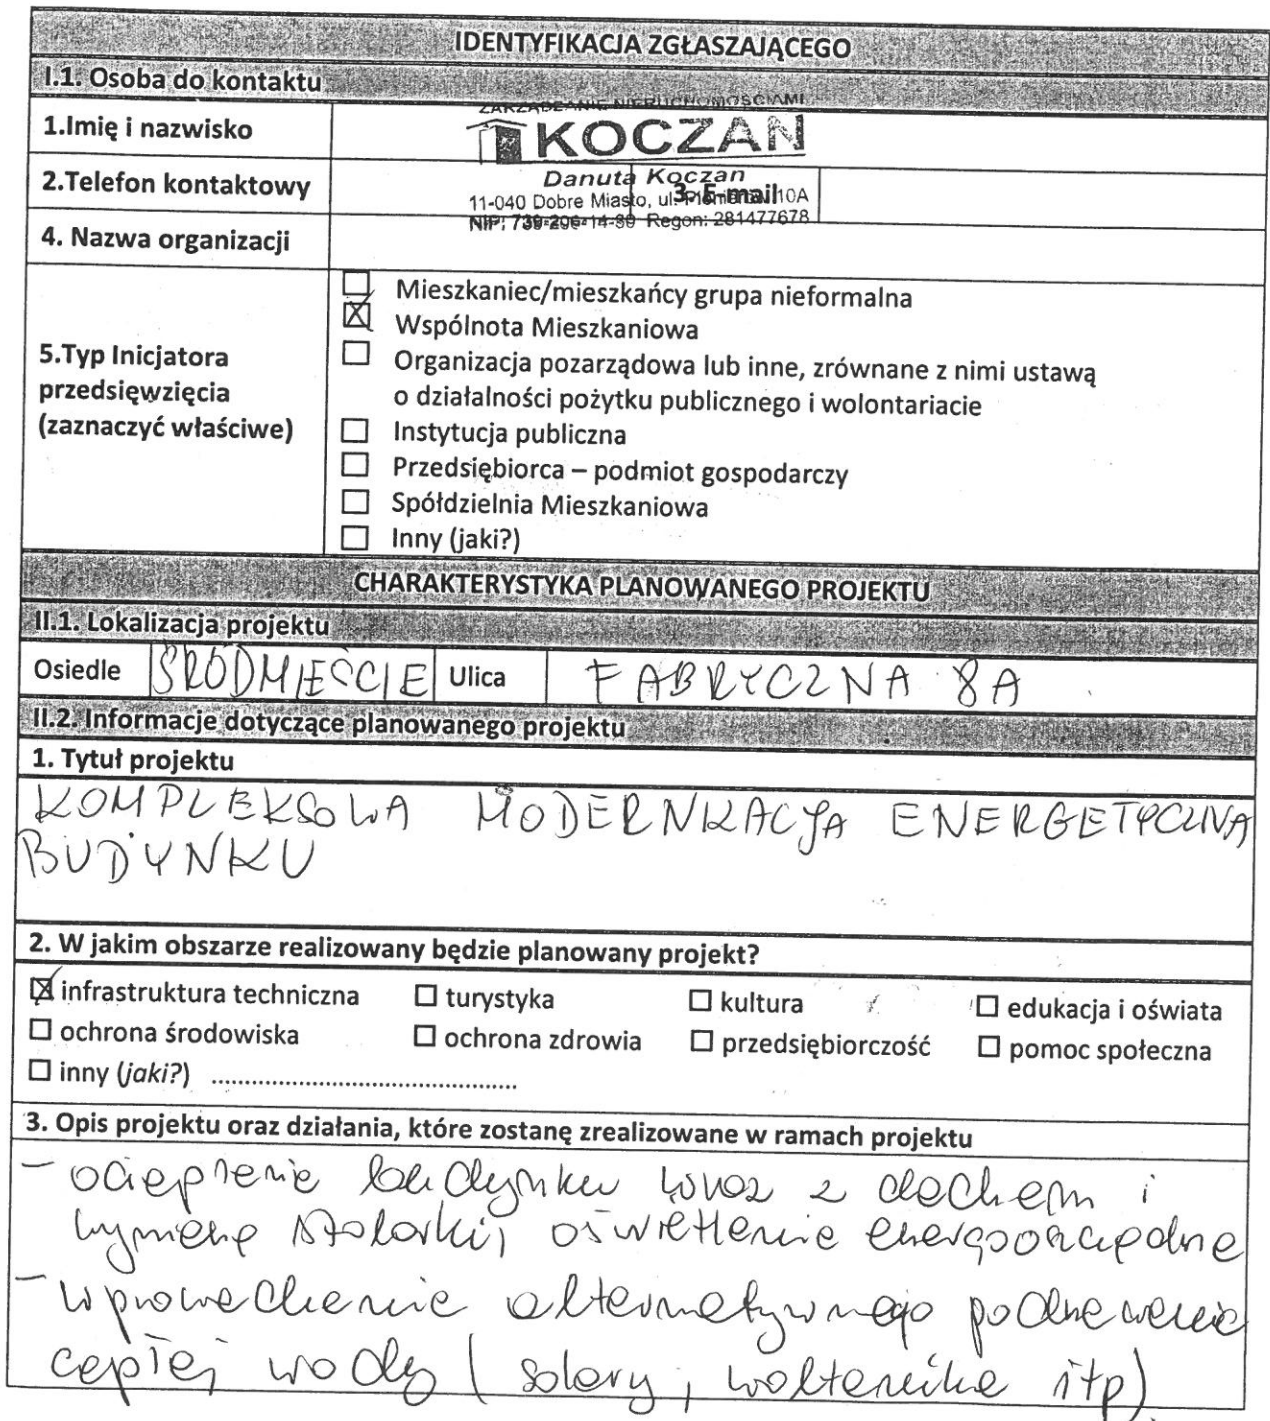 IDENTYFIKACJA ZGŁASZAJĄCEGO
I.1. Osoba do kontaktu
1.Imię i nazwisko
ZARZĄDZANIE NIERUCHOMOŚCIAMI
KOCZAN
Danuta Koczan
2.Telefon kontaktowy
3. E-mail
11-040 Dobre Miasto, ul. 10A
NIP: 739-206-14-89 Regon: 281477678
4. Nazwa organizacji
5.Typ Inicjatora
przedsięwzięcia
(zaznaczyć właściwe)
Mieszkaniec/mieszkańcy grupa nieformalna
Wspólnota Mieszkaniowa
Organizacja pozarządowa lub inne, zrównane z nimi ustawą
o działalności pożytku publicznego i wolontariacie
Instytucja publiczna
Przedsiębiorca – podmiot gospodarczy
Spółdzielnia Mieszkaniowa
Inny (jaki?)
CHARAKTERYSTYKA PLANOWANEGO PROJEKTU
II.1. Lokalizacja projektu
Osiedle ŚRÓDMIEŚCIE Ulica FABRYCZNA 8A
II.2. Informacje dotyczące planowanego projektu
1. Tytuł projektu
KOMPLEKSOWA MODERNIZACJA ENERGETYCZNA
BUDYNKU
2. W jakim obszarze realizowany będzie planowany projekt?
infrastruktura techniczna turystyka kultura edukacja i oświata
ochrona środowiska ochrona zdrowia przedsiębiorczość pomoc społeczna
inny (jaki?) ..............................................
3. Opis projektu oraz działania, które zostaną zrealizowane w ramach projektu
- ocieplenie budynku wraz z dachem i
wymianę stolarki, oświetlenie energooszczędne
- wprowadzenie alternatywnego podgrzewania
ciepłej wody ( solary, woltanika itp).